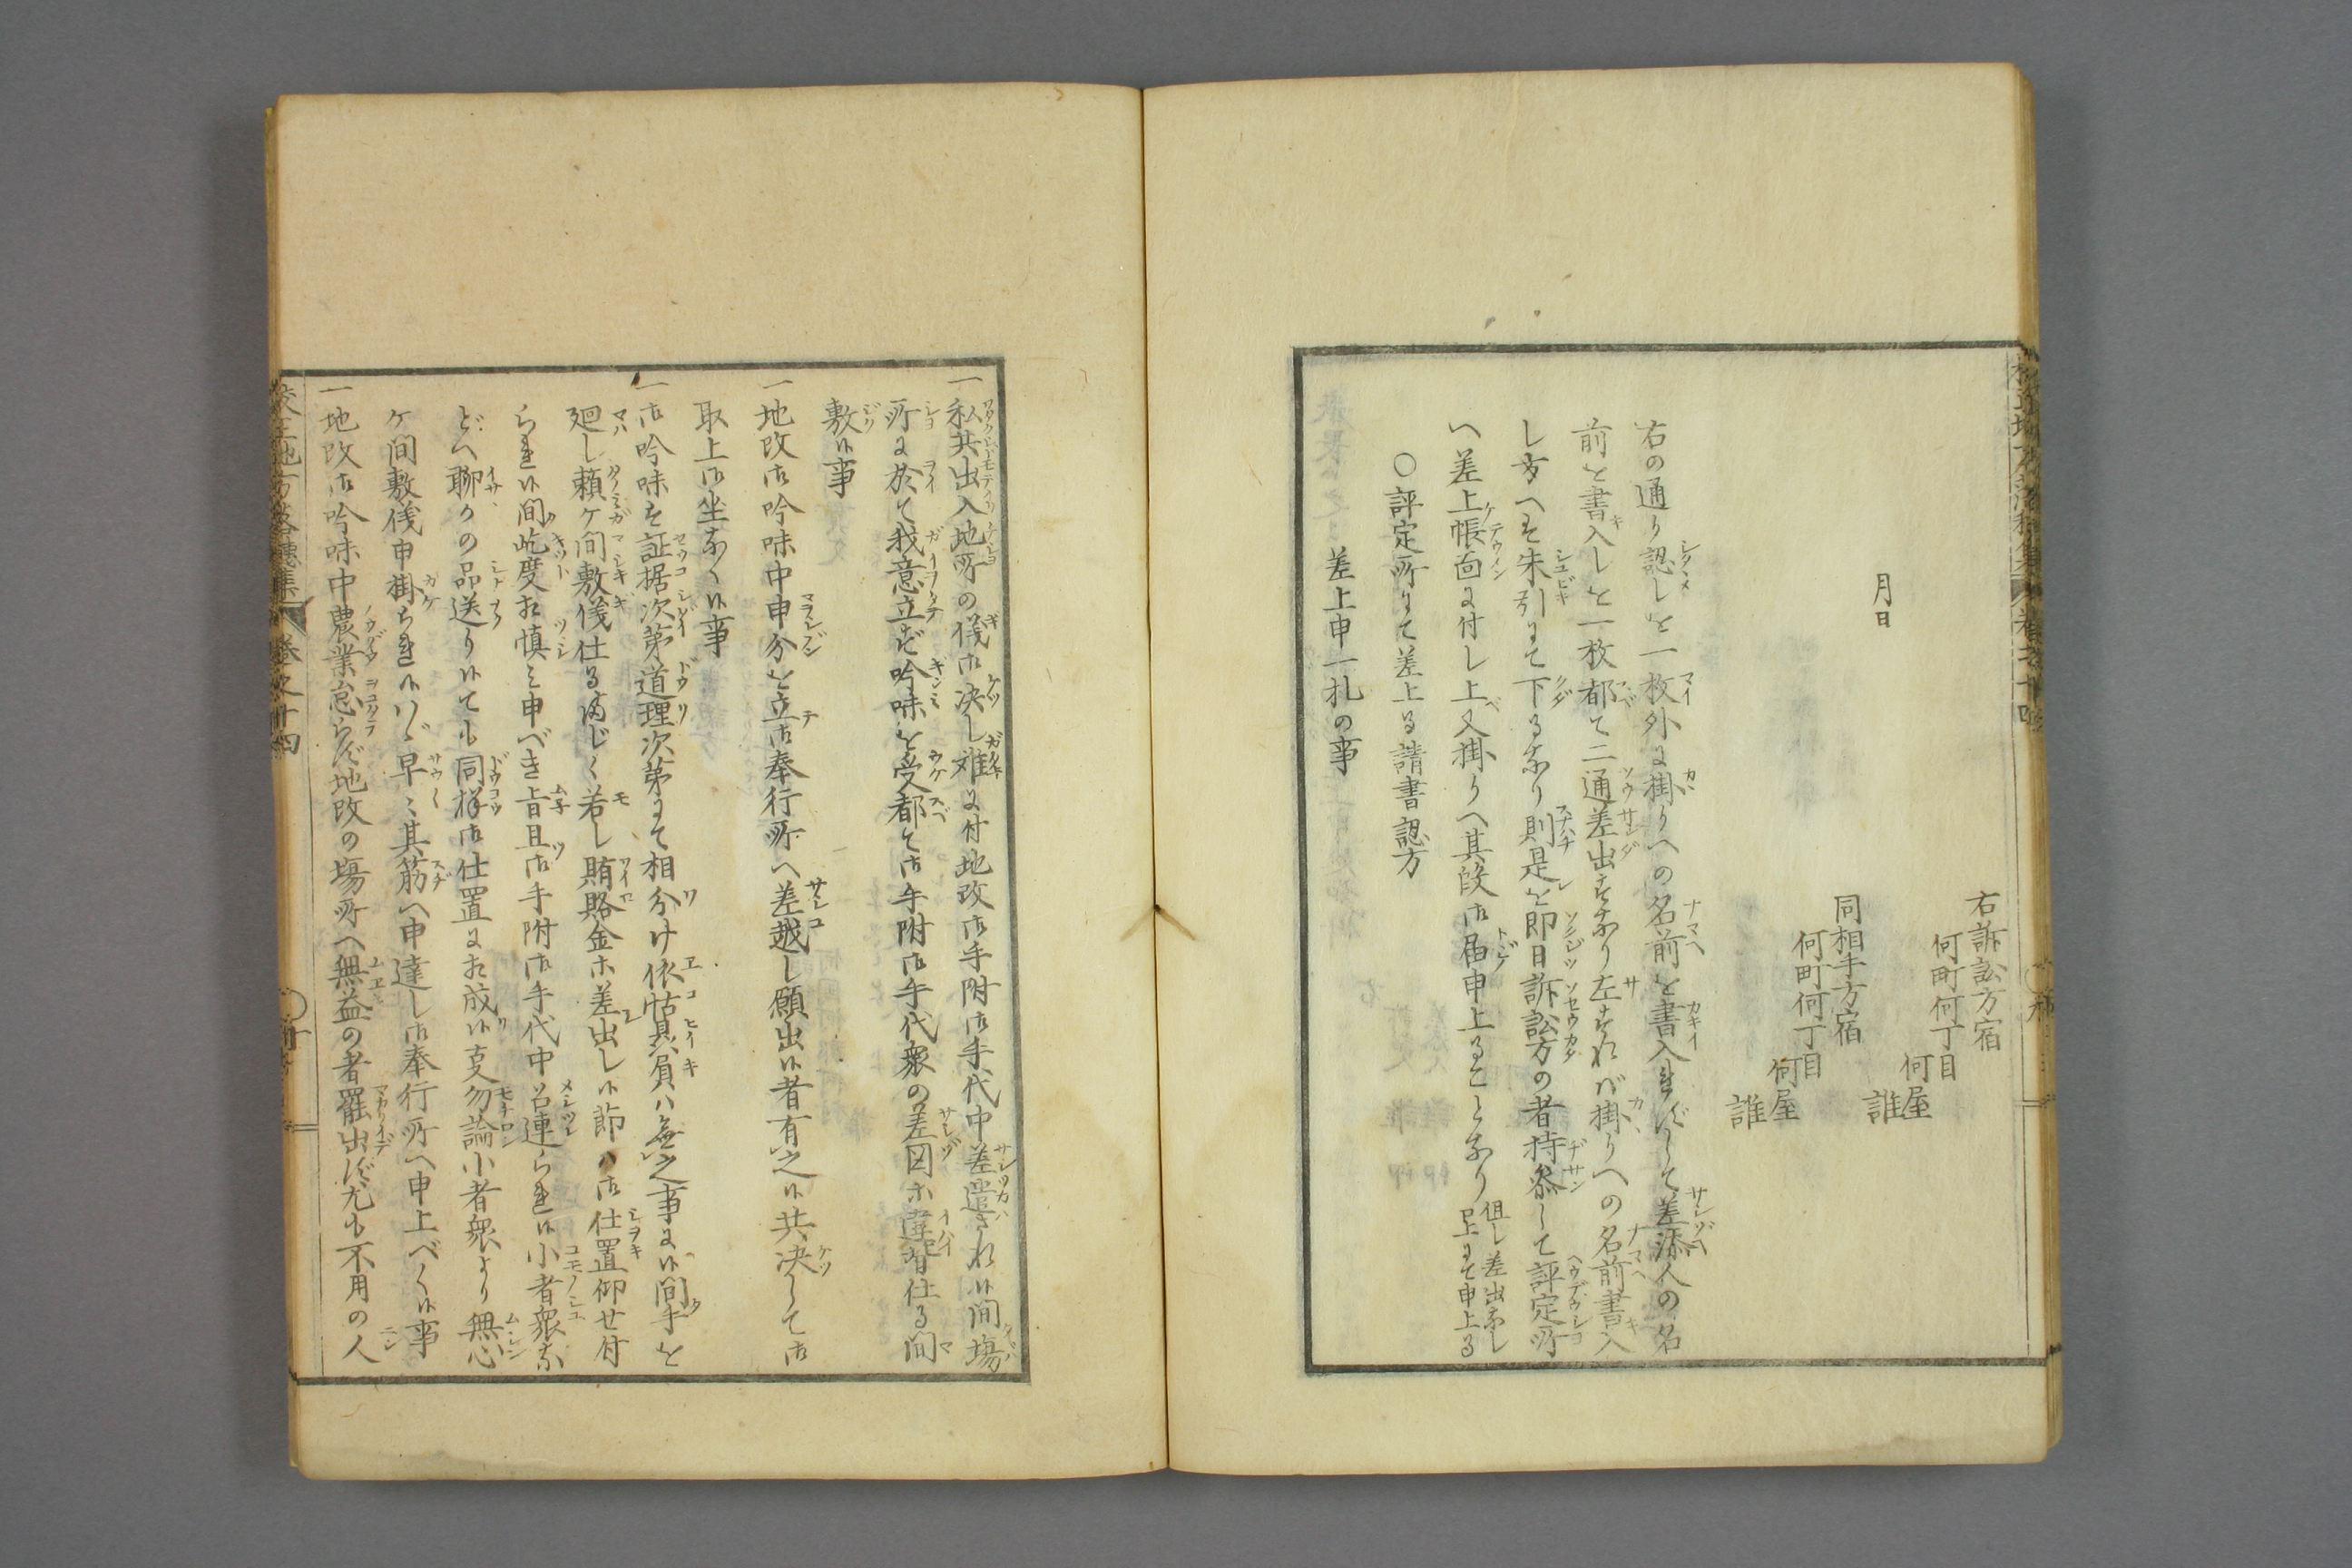 右訴訟方宿
何町何丁目
何屋
誰
月日
同相手方宿
何町何丁目
何屋
誰
右の通り認しを一枚外に掛りへの名前を書入れずして差添人の名
前を書入しを一枚都て二通差出すなり左すれバ掛りへの名前書入
し方へは朱引にて下るなり則是を即日訴訟方の者持参して評定所
へ差上帳面に付し上又掛りへ其段御届申上ることなり
但し差出なし
にて申上る
〇評定所にて差上る請書認方
差上申一札の事
一私共出入地所の儀御決し難に付地改御手附御手代中差遣され候間場
所に於て我意立ず吟味を受都て御手附御手代衆の差図等違背仕る間
敷候事
一地改御吟味中申分を立御奉行所へ差越し願出候者有之候共決して御
取上御坐なく候事
一御吟味は証拠次第道理次第にて相分け依怙贔屓ハ無之事に候間手を
廻し頼ケ間敷儀仕るまじく若し賄賂金等差出し候節ハ御仕置仰せ付
られ候間屹度相慎み申べき旨且御手附御手代中召連られ候小者衆な
どへ聊の品送り候ても同様御仕置に相成候支勿論小者衆より無心
ケ間敷儀申掛られ候ハヾ早々其筋へ申達し御奉行所へ申上べく候事
一地改御吟味中農業怠らず地改の場所へ無益の者罷出ず尤も不用の人
校正地方落穂集
巻之十四